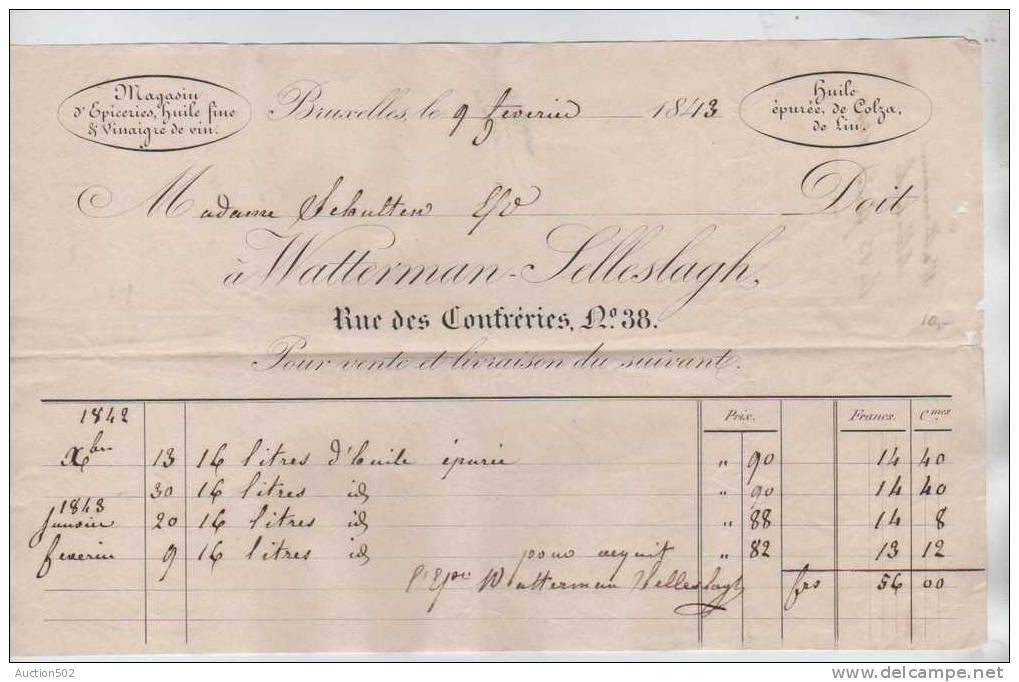 Magasin
d'Epiceries, huile fine
& Vinaigre de vin.
Bruxelles, le 9 feverier 1843
Huile
épurée, de Colza,
de Lin.
Madame Schulten Doit
à Watterman-Selleslagh,
Rue des Confréries, No. 38.
Pour vente et livraison du suivant.
10,-
1842 Prix. Francs. Cmes
Xber 13 16 litres d'huile épurée " 90 14 40
30 16 litres id " 90 14 40
1843
Janvier 20 16 litres id " 88 14 8
feverier 9 16 litres id pour acquit " 82 13 12
Watterman Selleslagh frs 56 00
Auction502
delcampe.net